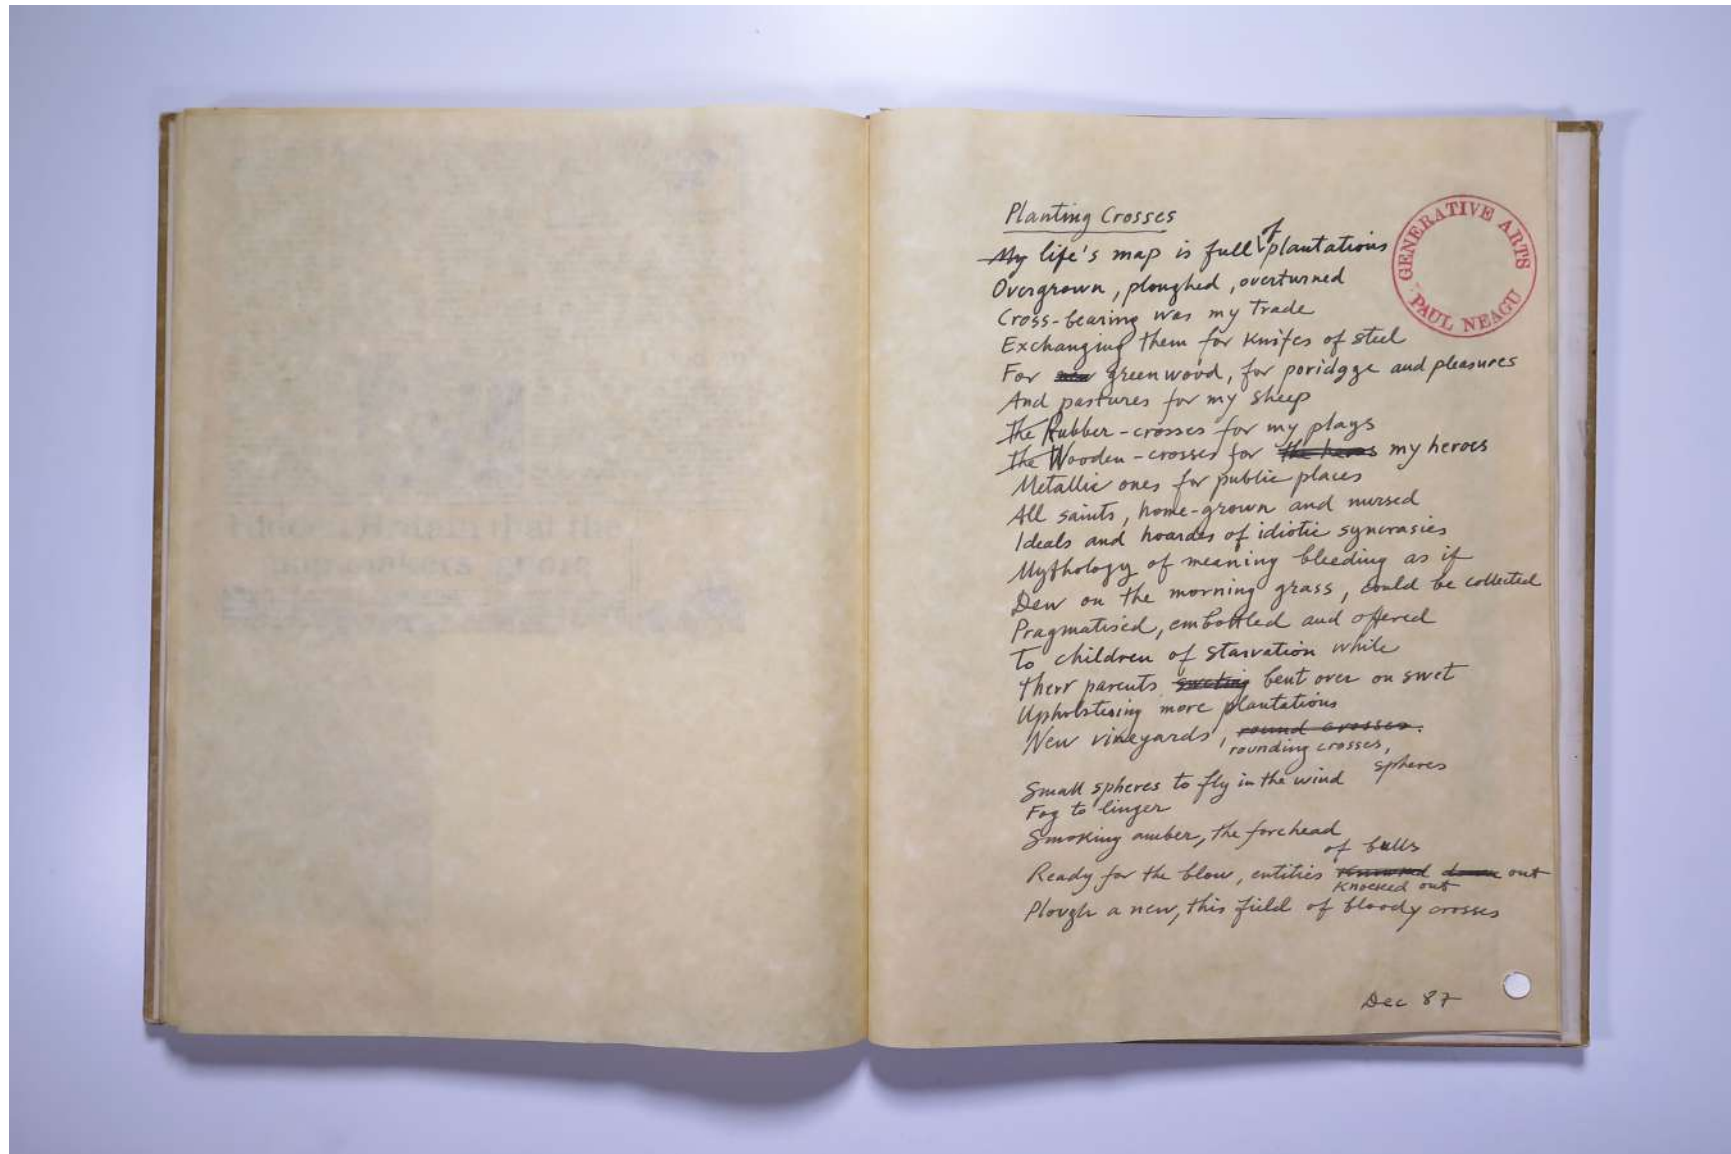 Planting Crosses
My life's map is full of plantations
Overgrown, ploughed, overturned
Cross-bearing was my trade
Exchanging them for Knifes of steel
For new greenwood, for poridgge and pleasures
And pastures for my sheep
The Rubber-crosses for my plays
The Wooden-crosses for the heros my heroes
Metallic ones for public places
All saints, home-grown and nursed
Ideals and hoardes of idiotic syncrasies
Mythology of meaning bleeding as if
Dew on the morning grass, could be collected
Pragmatised, embottled and offered
To children of starvation while
Their parents sweting bent over on swet
Upholstering more plantations
New vineyards, round crosses.
rounding crosses,
spheres
Small spheres to fly in the wind
Fog to linger
Smoking amber, the forehead
of bulls
Ready for the blow, entities down out
Knocked out
Plough a new, this field of bloody crosses
Dec 87
GENERATIVE ARTS
PAUL NEAGU